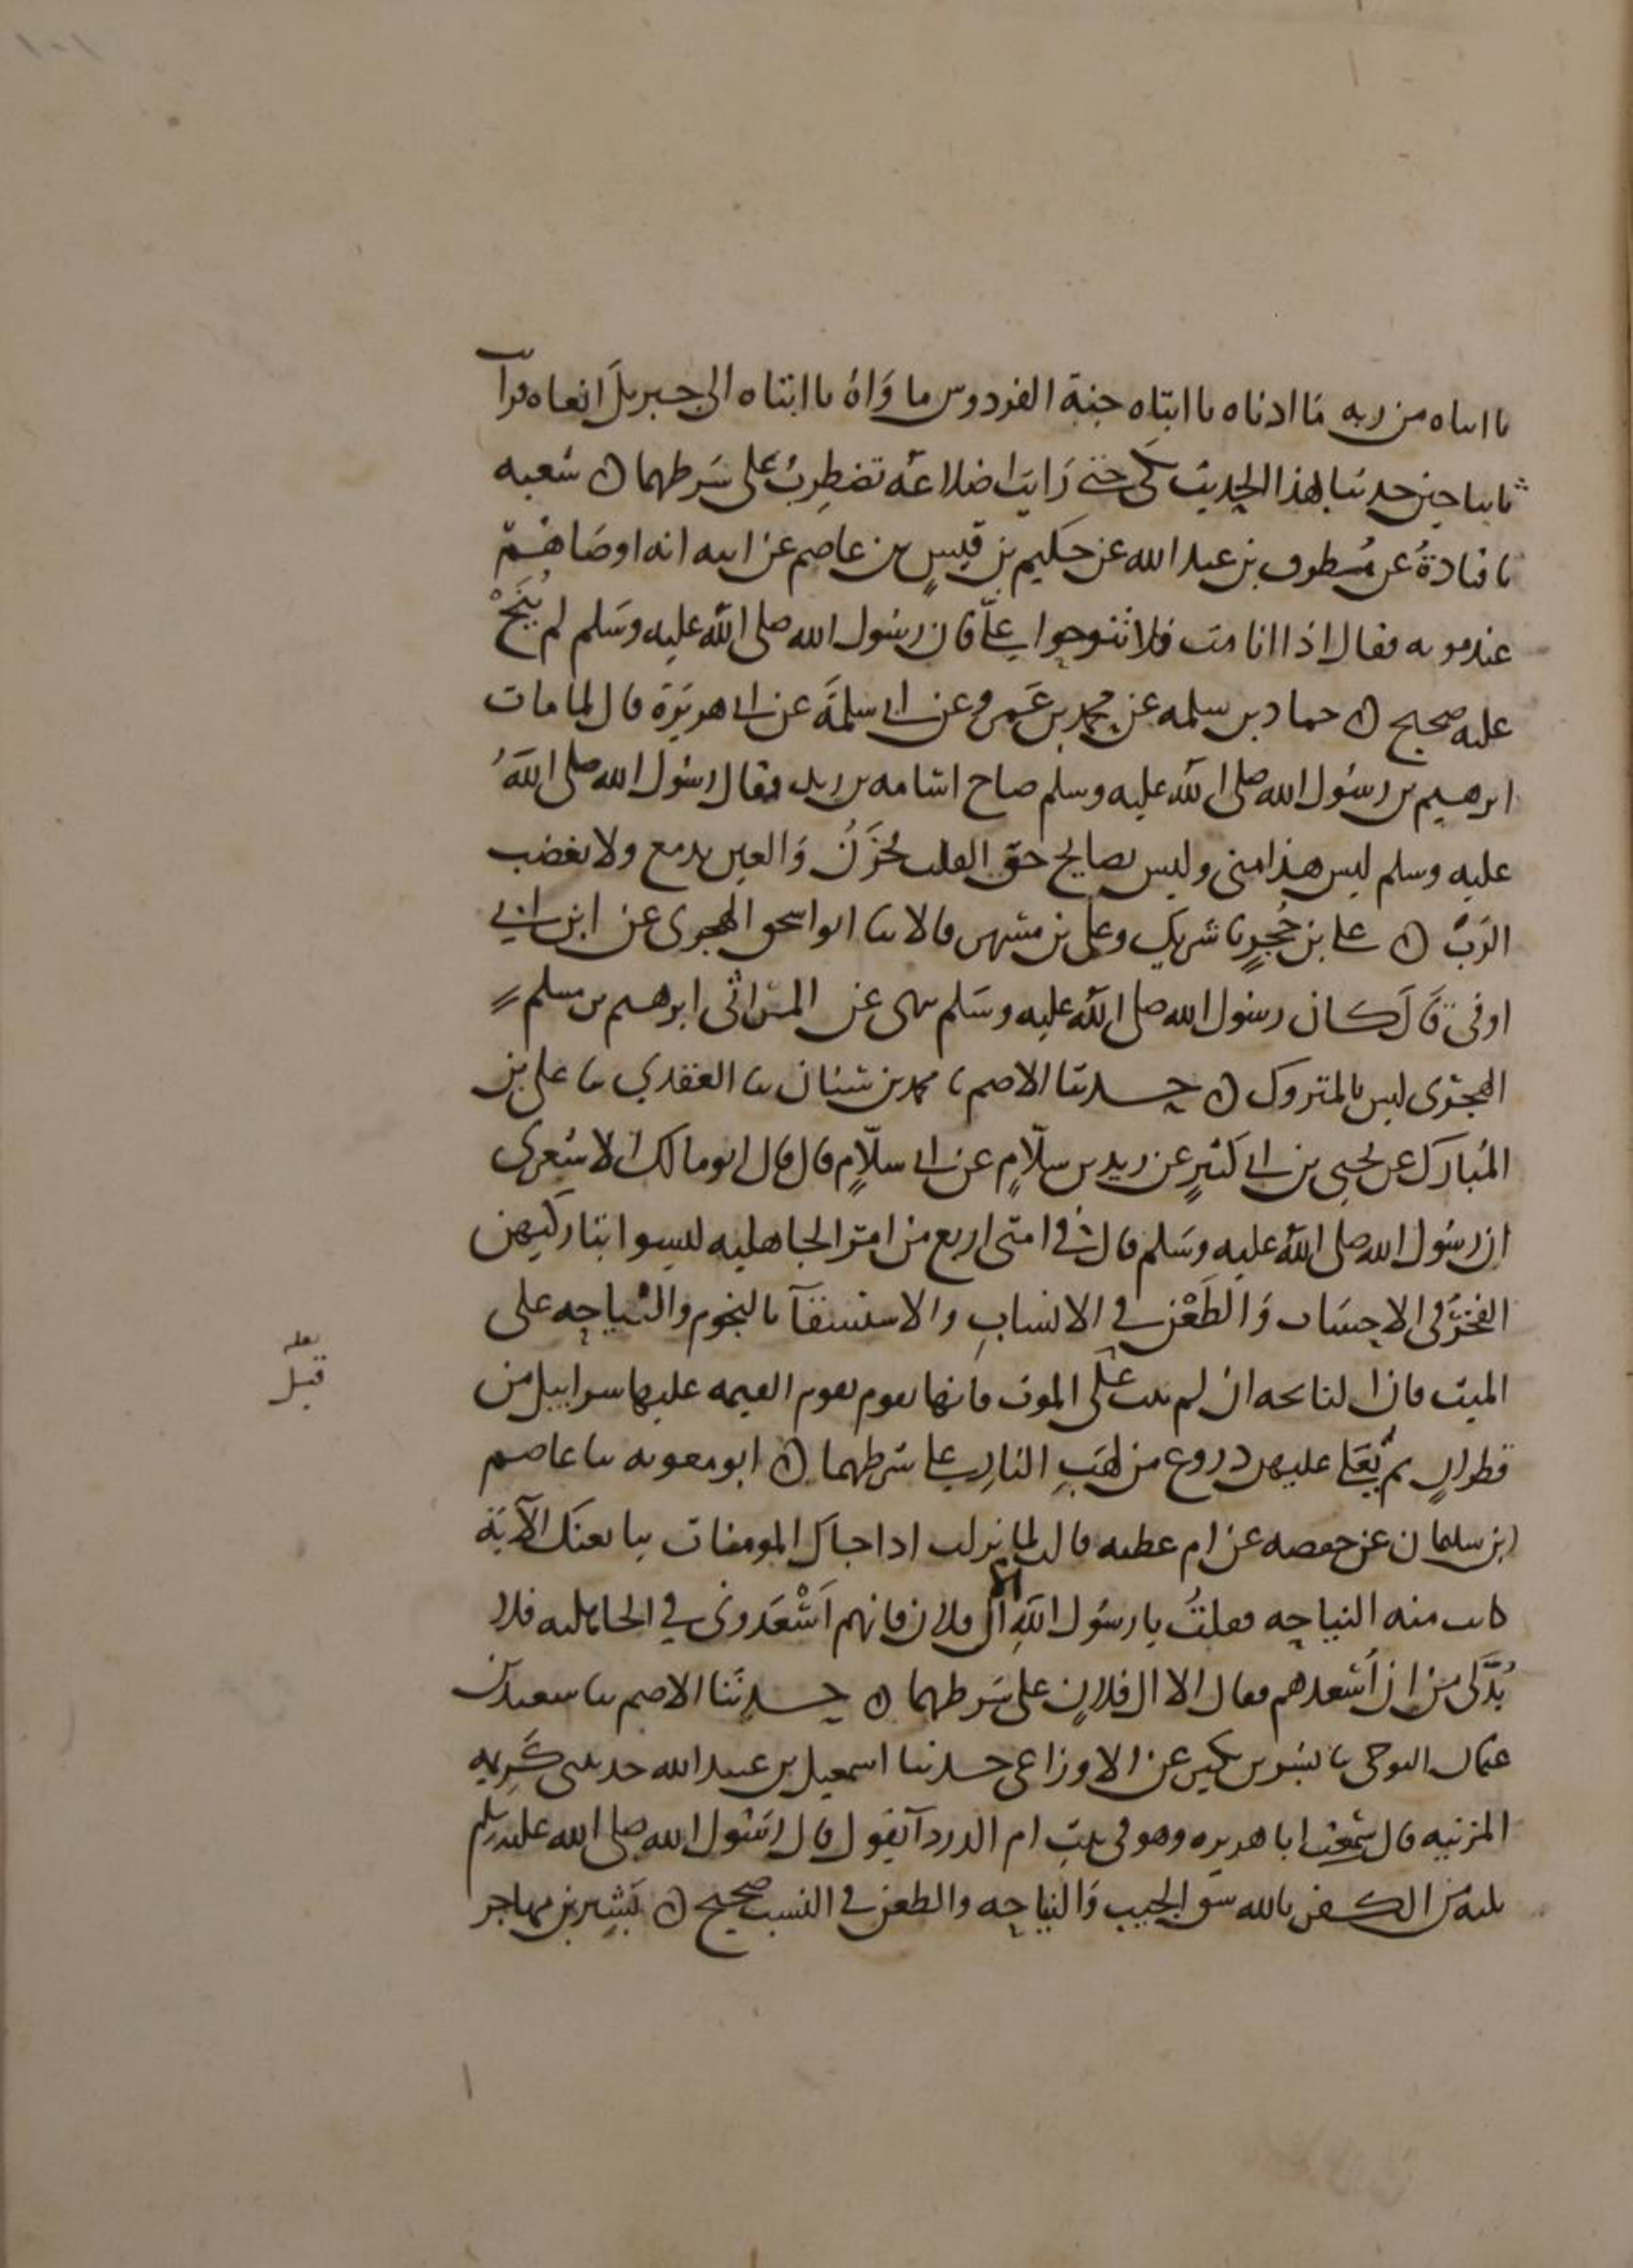 يا ابتاه من ربه ما ادناه يا ابتاه جنة الفردوس ماواه يا ابتاه الى جبريل انعاه فرات
ثابتا حين حدثنا بهذا الحديث بكى حتى رايت اضلاعه تضطرب على شرطهما ه شعبه
نا قتادة عن مطرف بن عبد الله عن حكيم بن قيس بن عاصم عن ابيه انه اوصاهم
عند موته فقال اذا انا مت فلا تنوحوا علي فان رسول الله صلى الله عليه وسلم لم ينح
عليه صحيح ه حماد بن سلمه عن محمد بن عمرو عن ابي سلمة عن ابي هريرة قال لما مات
ابرهيم بن رسول الله صلى الله عليه وسلم صاح اسامه بن زيد فقال رسول الله صلى الله
عليه وسلم ليس هذا مني وليس بصايح حق القلب يحزن والعين تدمع ولا نغضب
الرب ه علي بن حجر نا شريك وعلي بن مسهر قالا ثنا ابو اسحق الهجري عن ابن ابي
اوفى قال كان رسول الله صلى الله عليه وسلم ينهى عن المراثي ابرهيم بن مسلم
الهجري ليس بالمتروك ه حدثنا الاصم نا محمد بن سنان ثنا العقدي ثنا علي بن
المبارك عن يحيى بن ابي كثير عن زيد بن سلام عن ابي سلام قال قال ابو مالك الاشعري
ان رسول الله صلى الله عليه وسلم قال في امتي اربع من امر الجاهليه ليسوا بتاركيهن
الفخر في الاحساب والطعن في الانساب والاستسقآ بالنجوم والنياحه على
الميت فان النائحه ان لم تتب على الموت فانها تقوم يوم القيمه عليها سرابيل من
قطران ثم يعلى عليهن دروع من لهب النار على شرطهما ه ابو معويه ثنا عاصم
بن سليمان عن حفصه عن ام عطيه قالت لما نزلت اذا جاك المومنات يبايعنك الآية
كانت منه النياحه فقلت يا رسول الله الا ال فلان فانهم اسعدوني في الجاهليه فلا
بد لي من ان اسعدهم فقال الا ال فلان على شرطهما ه حدثنا الاصم ثنا سعيد بن
عثمان التنوخي نا بشر بن بكير عن الاوزاعي حدثنا اسمعيل بن عبيد الله حدثتني كريمه
المزنيه قال سمعت ابا هريره وهو في بيت ام الدردآ يقول قال رسول الله صلى الله عليه وسلم
ثلثه من الكفر بالله شق الجيب والنياحه والطعن في النسب صحيح ه بشير بن مهاجر
لعله
قبل